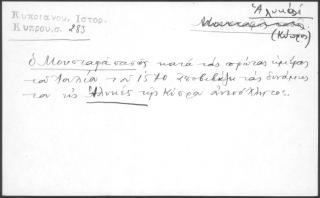 Κυπριανού, Ιστορ.
Κύπρου σ. 283
Ἁλυκαί
(Κύπρος)
ὁ Μουσταφᾶ πασᾶς κατά τάς πρώτας ἡμέρας
τοῦ Ἰουλίου τοῦ 1570 ἀπεβίβαζε τάς δυνάμεις
του εἰς Ἁλυκές τῆς Κύπρου